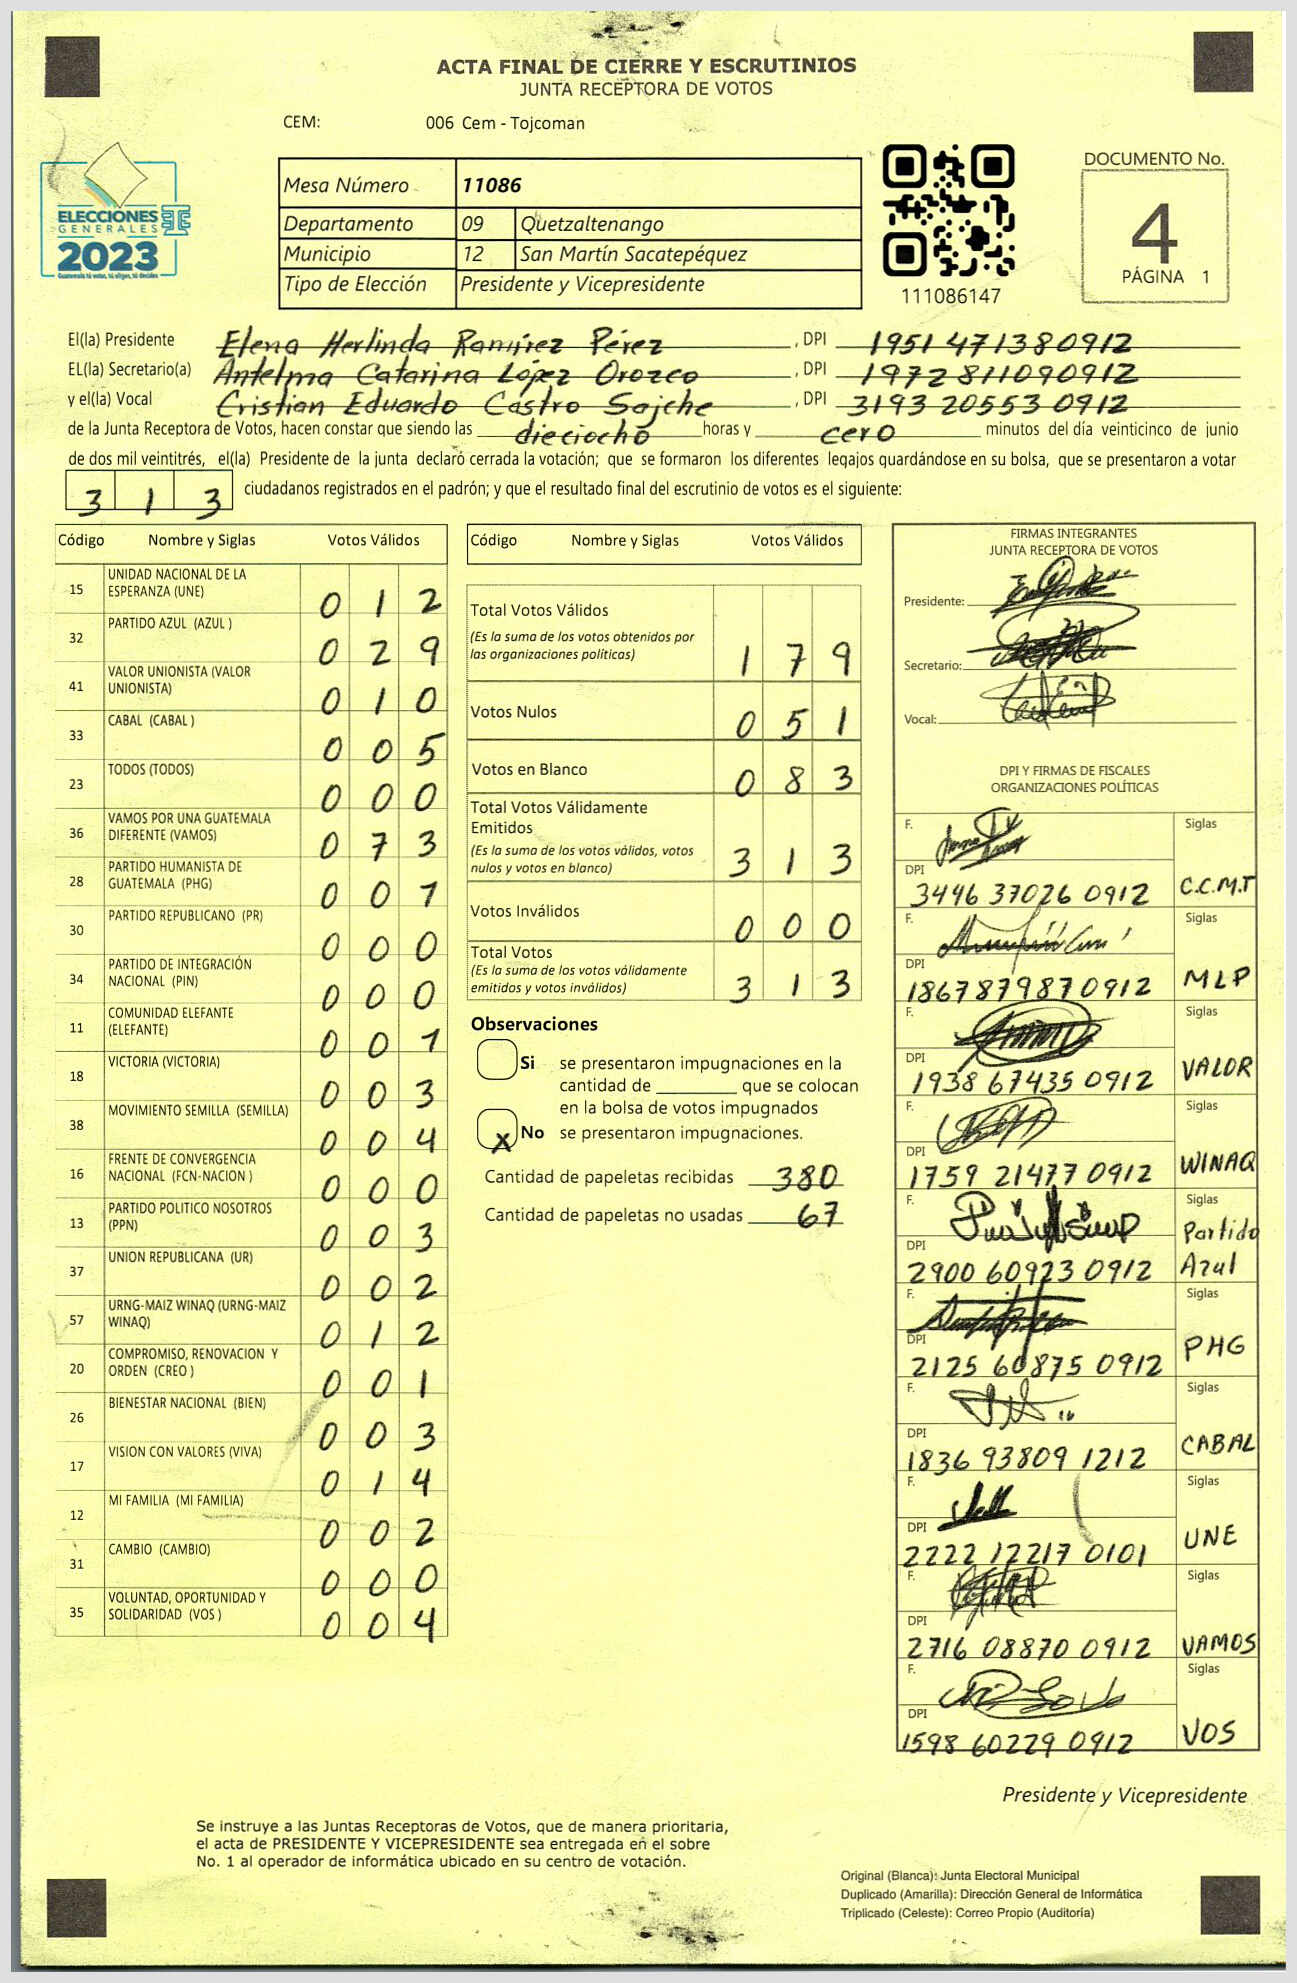 ACTA FINAL DE CIERRE Y ESCRUTINIOS
JUNTA RECEPTORA DE VOTOS
CEM: 006 Cem - Tojcoman
ELECCIONES
GENERALES
2023
Guatemala tú votas, tú eliges, tú decides
Mesa Número 11086
Departamento 09 Quetzaltenango
Municipio 12 San Martín Sacatepéquez
Tipo de Elección Presidente y Vicepresidente
111086147
DOCUMENTO No.
4
PÁGINA 1
El(la) Presidente Elena Herlinda Ramírez Pérez , DPI 1951 47138 0912
EL(la) Secretario(a) Antelma Catarina López Orozco , DPI 1972 81109 0912
y el(la) Vocal Cristian Eduardo Castro Sajche , DPI 3193 20553 0912
de la Junta Receptora de Votos, hacen constar que siendo las dieciocho horas y cero minutos del día veinticinco de junio
de dos mil veintitrés, el(la) Presidente de la junta declaró cerrada la votación; que se formaron los diferentes legajos guardándose en su bolsa, que se presentaron a votar
3 1 3 ciudadanos registrados en el padrón; y que el resultado final del escrutinio de votos es el siguiente:
Código Nombre y Siglas Votos Válidos
15 UNIDAD NACIONAL DE LA
ESPERANZA (UNE) 0 1 2
32 PARTIDO AZUL (AZUL ) 0 2 9
41 VALOR UNIONISTA (VALOR
UNIONISTA) 0 1 0
33 CABAL (CABAL ) 0 0 5
23 TODOS (TODOS) 0 0 0
36 VAMOS POR UNA GUATEMALA
DIFERENTE (VAMOS) 0 7 3
28 PARTIDO HUMANISTA DE
GUATEMALA (PHG) 0 0 1
30 PARTIDO REPUBLICANO (PR) 0 0 0
34 PARTIDO DE INTEGRACIÓN
NACIONAL (PIN) 0 0 0
11 COMUNIDAD ELEFANTE
(ELEFANTE) 0 0 1
18 VICTORIA (VICTORIA) 0 0 3
38 MOVIMIENTO SEMILLA (SEMILLA) 0 0 4
16 FRENTE DE CONVERGENCIA
NACIONAL (FCN-NACION ) 0 0 0
13 PARTIDO POLITICO NOSOTROS
(PPN) 0 0 3
37 UNION REPUBLICANA (UR) 0 0 2
57 URNG-MAIZ WINAQ (URNG-MAIZ
WINAQ) 0 1 2
20 COMPROMISO, RENOVACION Y
ORDEN (CREO ) 0 0 1
26 BIENESTAR NACIONAL (BIEN) 0 0 3
17 VISION CON VALORES (VIVA) 0 1 4
12 MI FAMILIA (MI FAMILIA) 0 0 2
31 CAMBIO (CAMBIO) 0 0 0
35 VOLUNTAD, OPORTUNIDAD Y
SOLIDARIDAD (VOS ) 0 0 4
Código Nombre y Siglas Votos Válidos
Total Votos Válidos
(Es la suma de los votos obtenidos por
las organizaciones políticas) 1 7 9
Votos Nulos 0 5 1
Votos en Blanco 0 8 3
Total Votos Válidamente
Emitidos
(Es la suma de los votos válidos, votos
nulos y votos en blanco) 3 1 3
Votos Inválidos 0 0 0
Total Votos
(Es la suma de los votos válidamente
emitidos y votos inválidos) 3 1 3
Observaciones
Si se presentaron impugnaciones en la
cantidad de ________ que se colocan
en la bolsa de votos impugnados
X No se presentaron impugnaciones.
Cantidad de papeletas recibidas 380
Cantidad de papeletas no usadas 67
FIRMAS INTEGRANTES
JUNTA RECEPTORA DE VOTOS
Presidente:
Secretario:
Vocal:
DPI Y FIRMAS DE FISCALES
ORGANIZACIONES POLÍTICAS
F. Siglas
DPI
3446 37026 0912 C.C.M.T
F. Siglas
DPI
1867 87987 0912 MLP
F. Siglas
DPI
1938 67435 0912 VALOR
F. Siglas
DPI
1759 21477 0912 WINAQ
F. Siglas
DPI Partido
2900 60923 0912 Azul
F. Siglas
DPI
2125 60875 0912 PHG
F. Siglas
DPI
1836 93809 1212 CABAL
F. Siglas
DPI
2222 12217 0101 UNE
F. Siglas
DPI
2716 08870 0912 VAMOS
F. Siglas
DPI
1598 60229 0912 VOS
Presidente y Vicepresidente
Se instruye a las Juntas Receptoras de Votos, que de manera prioritaria,
el acta de PRESIDENTE Y VICEPRESIDENTE sea entregada en el sobre
No. 1 al operador de informática ubicado en su centro de votación.
Original (Blanca): Junta Electoral Municipal
Duplicado (Amarilla): Dirección General de Informática
Triplicado (Celeste): Correo Propio (Auditoría)